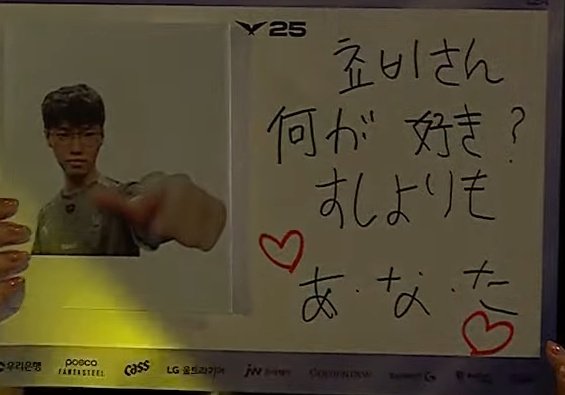 25
쵸비さん
何が好き?
すしよりも
あ・な・た
우리은행
posco
FANTASTEEL
Cass
LG 울트라기어